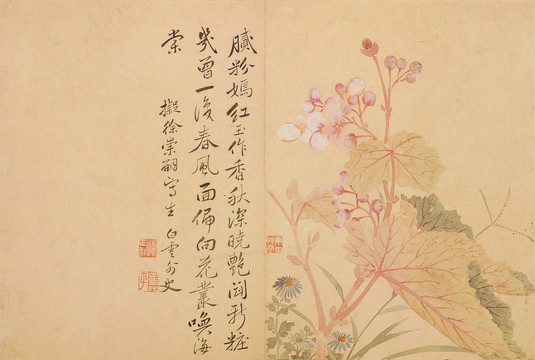 膩粉嫣紅玉作香秋深曉艷鬪新粧
幾曾一春風面偏向花叢喚海
棠
擬徐崇嗣寫生 白雲外史